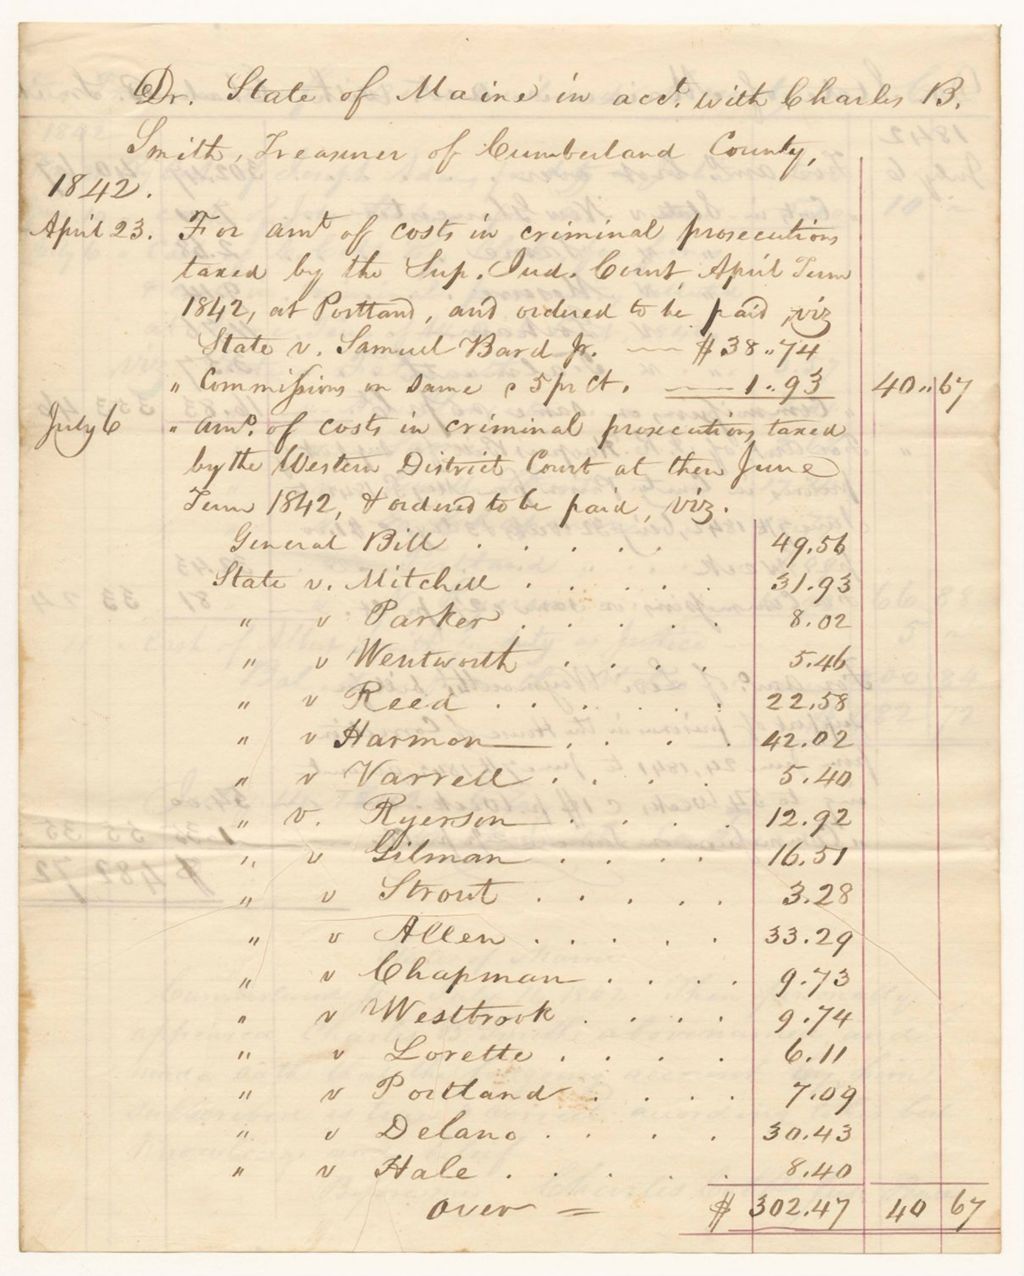 Dr. State of Maine in acct. with Charles B.
Smith, Treasurer of Cumberland County,
1842.
April 23. For amt of costs in criminal prosecutions
taxed by the Sup. Jud. Court April Term
1842, at Portland, and ordered to be paid, viz
State v. Samuel Bard Jr. — $38..74
" Commissions on same @ 5 pr ct. — 1..93 40..67
July 6 " amo. of costs in criminal prosecutions, taxed
by the Western District Court at their June
Term 1842, & ordered to be paid, viz.
General Bill . . . . . 49.56
State v. Mitchell . . . . 31.93
" v Parker . . . . . 8.02
" v Wentworth . . . . 5.46
" v Reed . . . . . . 22.58
" v Harmon . . . . 42.02
" v Varrell . . . . 5.40
" v. Ryerson . . . . 12.92
" v Gilman . . . . 16.51
" v Strout . . . . . 3.28
" v Allen . . . . . 33.29
" v Chapman . . . . 9.73
" v Westbrook . . . . 9.74
" v Lorette . . . . 6.11
" v Portland . . . . 7.09
" v Delano . . . . 30.43
" v Hale . . . . 8.40
over = $ 302.47 40 67